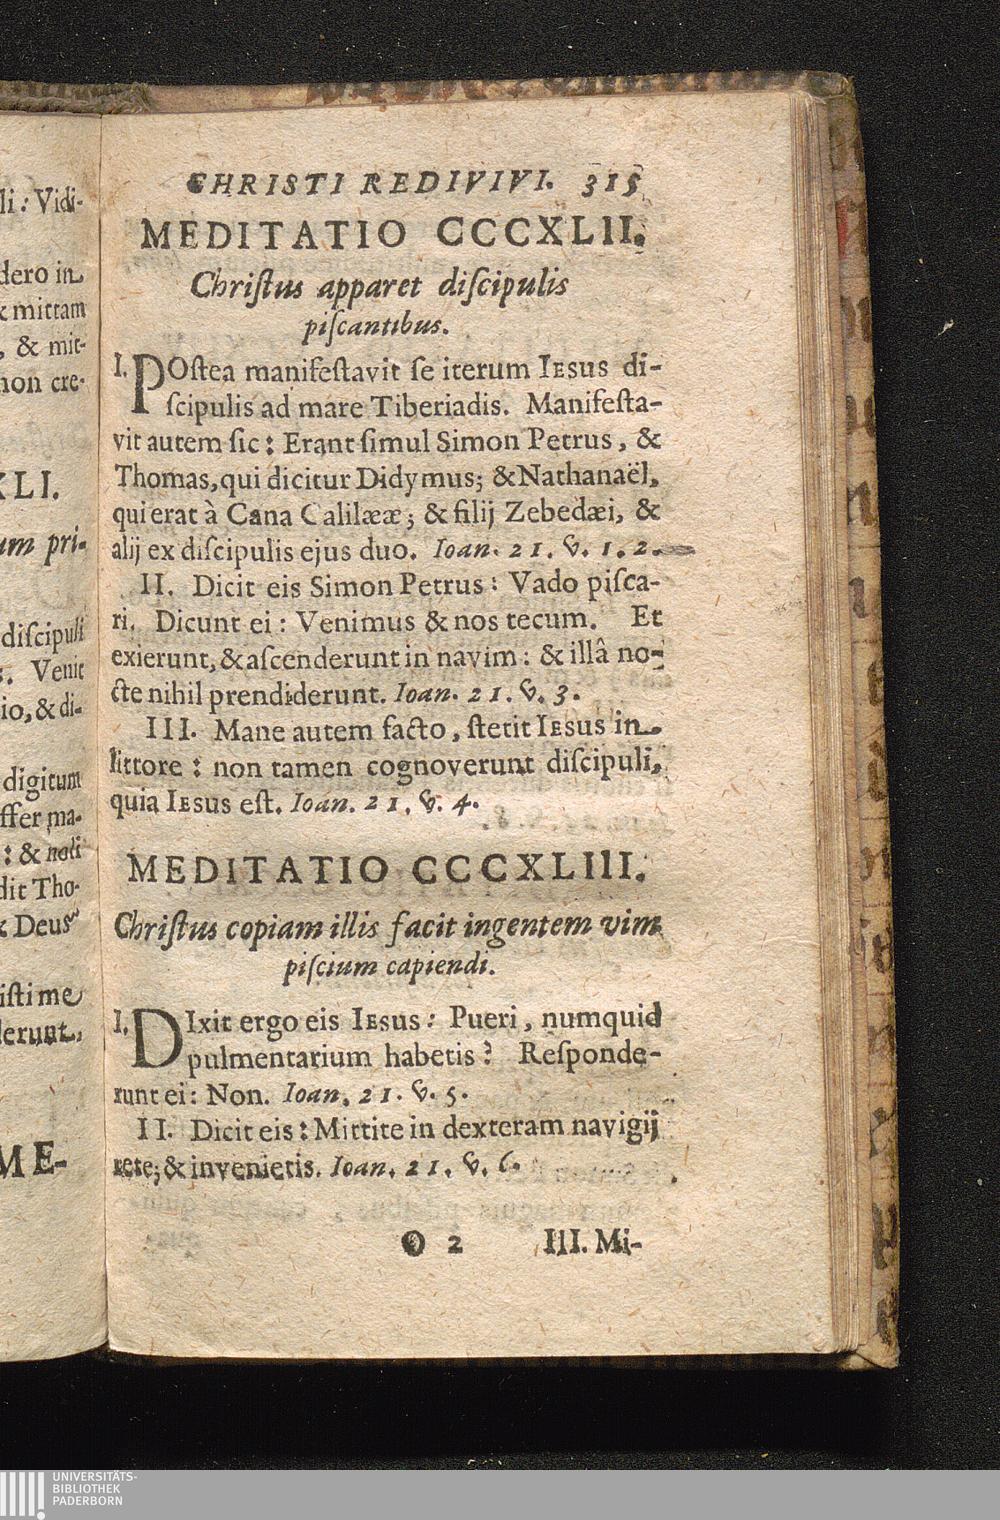 li: Vidi-
dero in
& mittam
, & mit-
non cre-
XLI.
um pri-
discipuli
. Venit
io, & di-
digitum
ffer ma-
: & noli
dit Tho-
& Deus
isti me
derunt,
ME-
CHRISTI REDIVIVI. 315
MEDITATIO CCCXLII.
Christus apparet discipulis
piscantibus.
I. POstea manifestavit se iterum IESUS di-
scipulis ad mare Tiberiadis. Manifesta-
vit autem sic: Erant simul Simon Petrus, &
Thomas, qui dicitur Didymus; & Nathanaël,
qui erat à Cana Calilææ; & filij Zebedæi, &
alij ex discipulis ejus duo. Ioan. 21. v. 1. 2.
II. Dicit eis Simon Petrus: Vado pisca-
ri. Dicunt ei: Venimus & nos tecum. Et
exierunt, & ascenderunt in navim: & illâ no-
cte nihil prendiderunt. Ioan. 21. v. 3.
III. Mane autem facto, stetit IESUS in
littore: non tamen cognoverunt discipuli,
quia IESUS est. Ioan. 21. v. 4.
MEDITATIO CCCXLIII.
Christus copiam illis facit ingentem vim
piscium capiendi.
I. DIxit ergo eis IESUS: Pueri, numquid
pulmentarium habetis? Responde-
runt ei: Non. Ioan. 21. v. 5.
II. Dicit eis: Mittite in dexteram navigij
rete; & invenietis. Ioan. 21. v. 6.
O 2 III. Mi-
UNIVERSITÄTS-
BIBLIOTHEK
PADERBORN